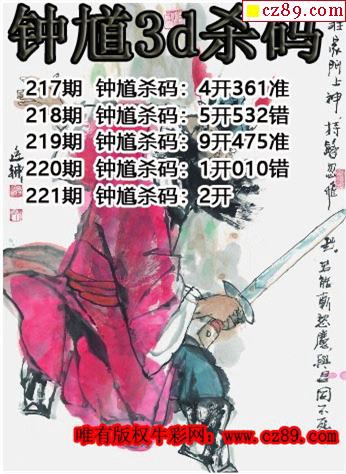 cz89.com
钟馗3d杀码
217期 钟馗杀码：4开361准
218期 钟馗杀码：5开532错
219期 钟馗杀码：9开475准
220期 钟馗杀码：1开010错
221期 钟馗杀码：2开
唯有版权牛彩网：www.cz89.com